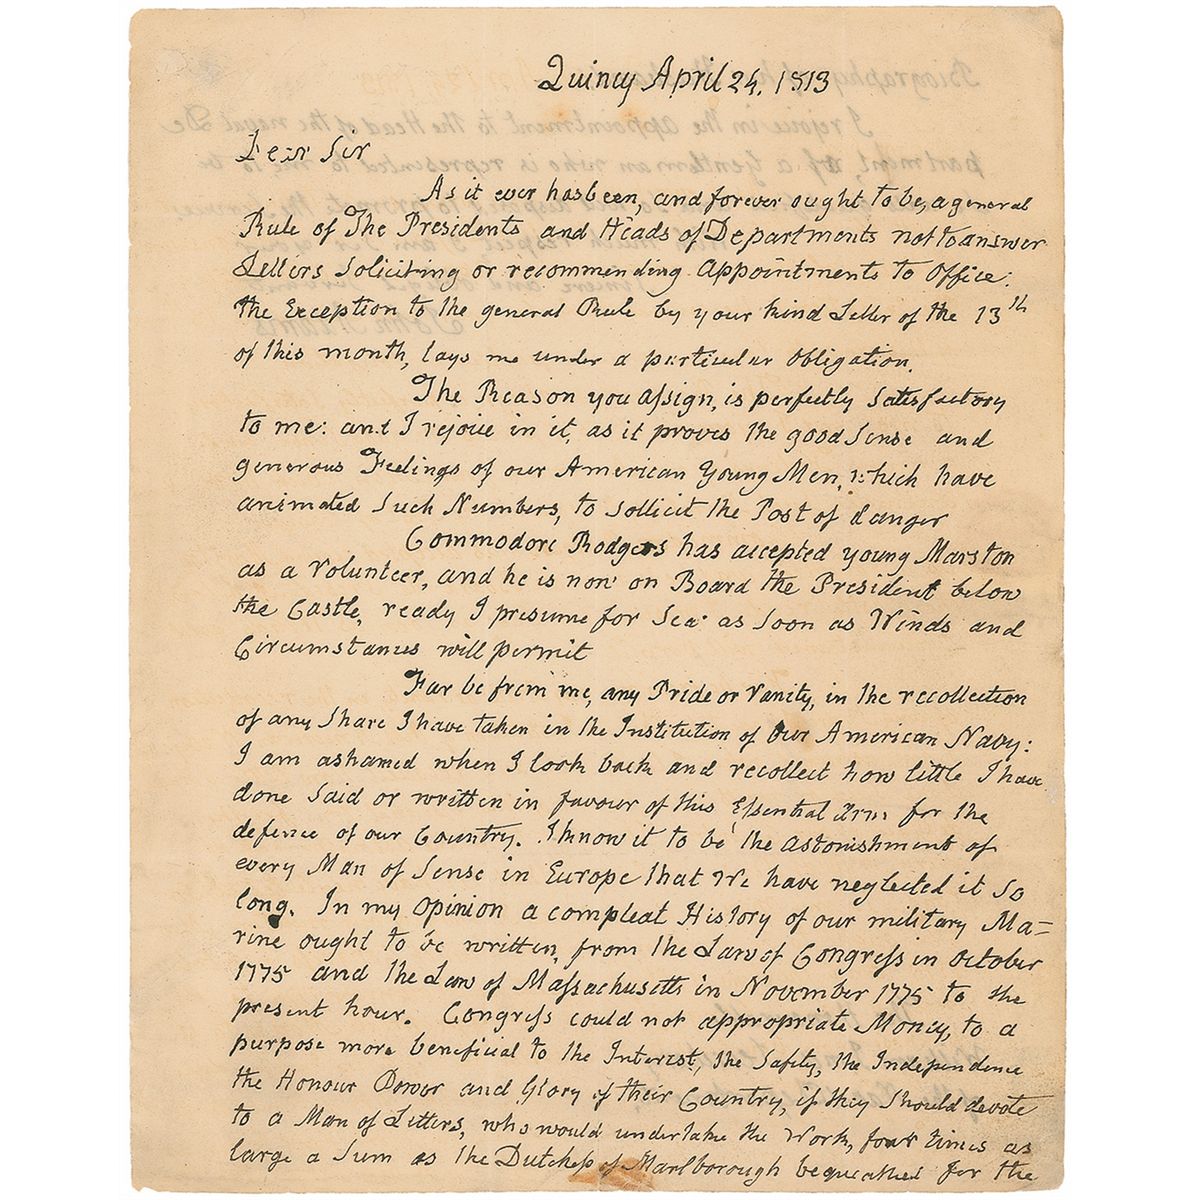 Quincy April 24. 1813
Dear Sir
As it ever has been, and forever ought to be, a general
Rule of The Presidents and Heads of Departments not to answer
Letters Soliciting or recommending Appointments to Office:
the Exception to the general Rule by your kind Letter of the 13th
of this month, lays me under a particular obligation.
The Reason you assign, is perfectly Satisfactory
to me: and I rejoice in it, as it proves the good Sense and
generous Feelings of our American Young Men, which have
animated Such Numbers, to Sollicit the Post of danger
Commodore Rodgers has accepted young Marston
as a Volunteer, and he is now on Board the President below
the Castle, ready I presume for Sea as Soon as Winds and
Circumstances will permit
Far be from me, any Pride or Vanity, in the recollection
of any Share I have taken in the Institution of our American Navy:
I am ashamed when I look back and recollect how little I have
done Said or written in favour of this Essential Arm for the
defence of our Country. I know it to be the astonishment of
every Man of Sense in Europe that We have neglected it So
long. In my opinion a compleat History of our military Ma=
rine ought to be written, from the Law of Congress in October
1775 and the Law of Massachusetts in November 1775 to the
present hour. Congress could not appropriate Money, to a
purpose more beneficial to the Interest, the Safety, the Independence
the Honour Power and Glory of their Country, if they Should devote
to a Man of Letters, who would undertake the Work, four times as
large a Sum as the Dutchess of Marlborough bequeathed for the